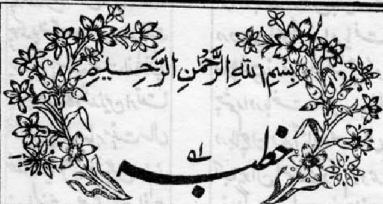 بِسْمِ اللهِ الرَّحْمٰنِ الرَّحِيْمِ
خطبہ